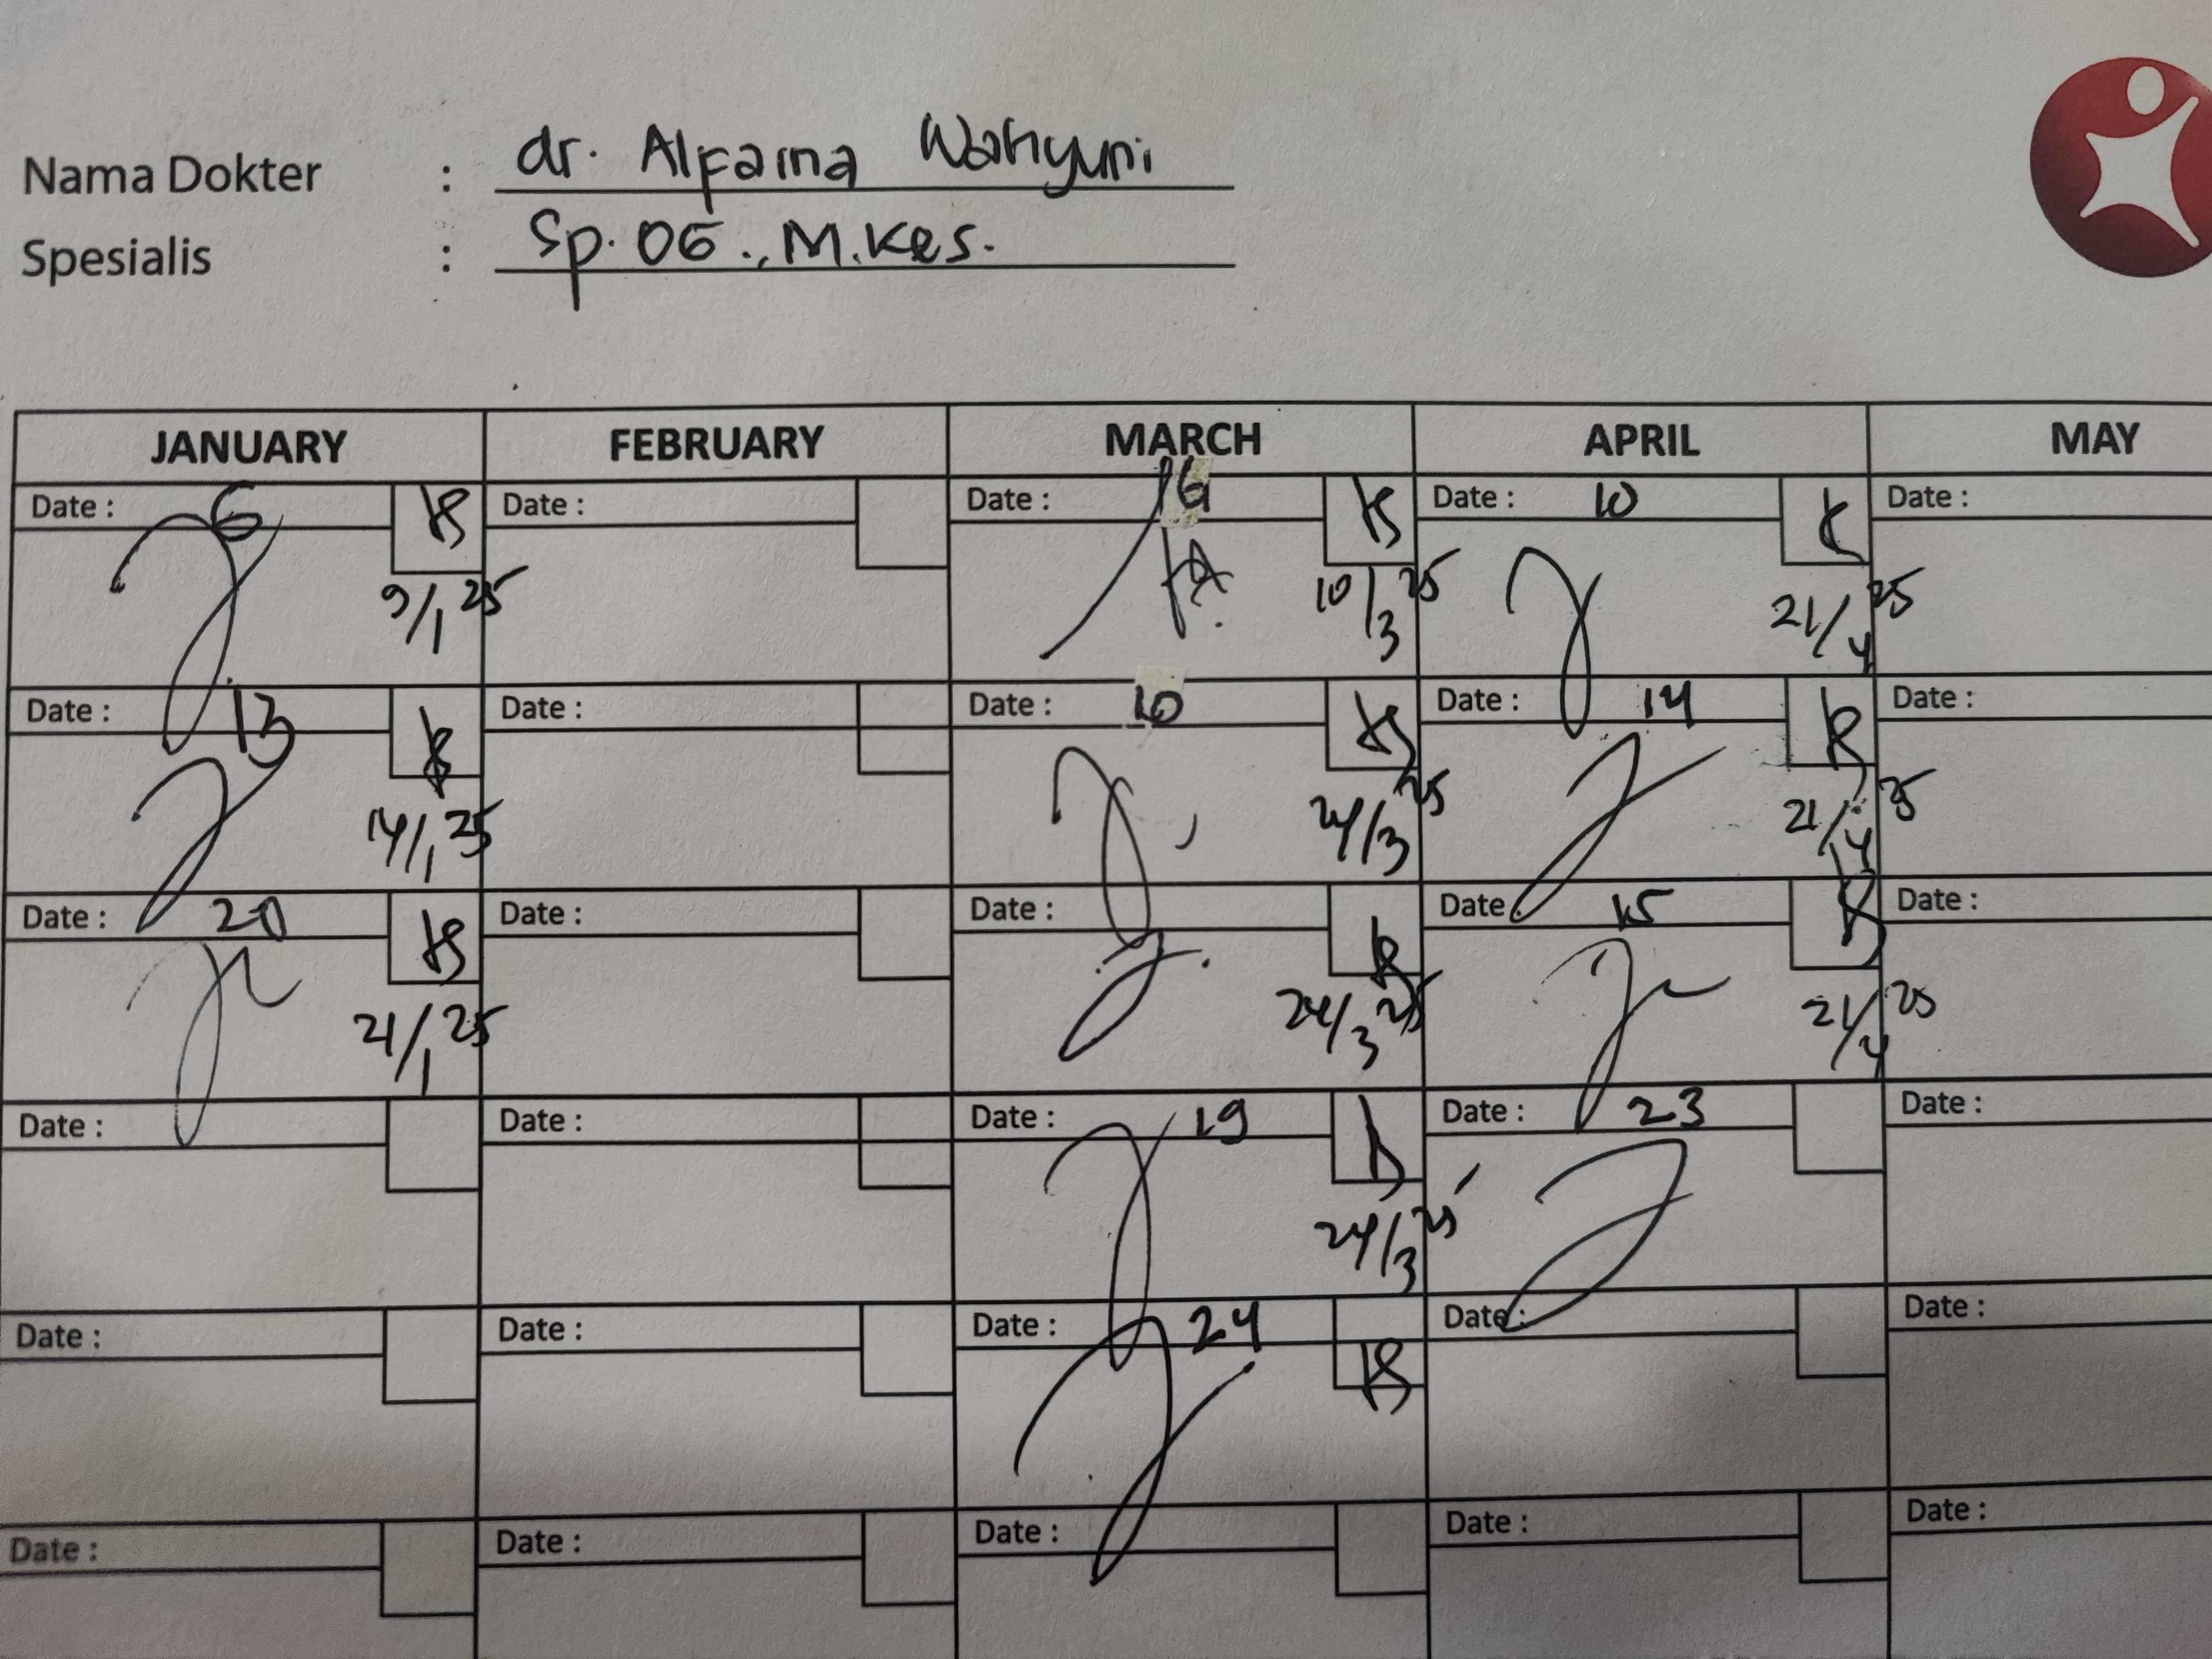 Nama Dokter : dr. Alfaina Wahyuni
Spesialis : Sp.OG., M.Kes.
JANUARY FEBRUARY MARCH APRIL MAY
Date : 6 Date : Date : Date : 10 Date :
9/1 25 10/3 25 21/4 25
Date : 13 Date : Date : 10 Date : 14 Date :
14/1 25 24/3 25 21/4 25
Date : 20 Date : Date : Date : 15 Date :
21/1 25 24/3 25 21/4 25
Date : Date : Date : 19 Date : 23 Date :
24/3 25
Date : Date : Date : 24 Date : Date :
Date : Date : Date : Date : Date :